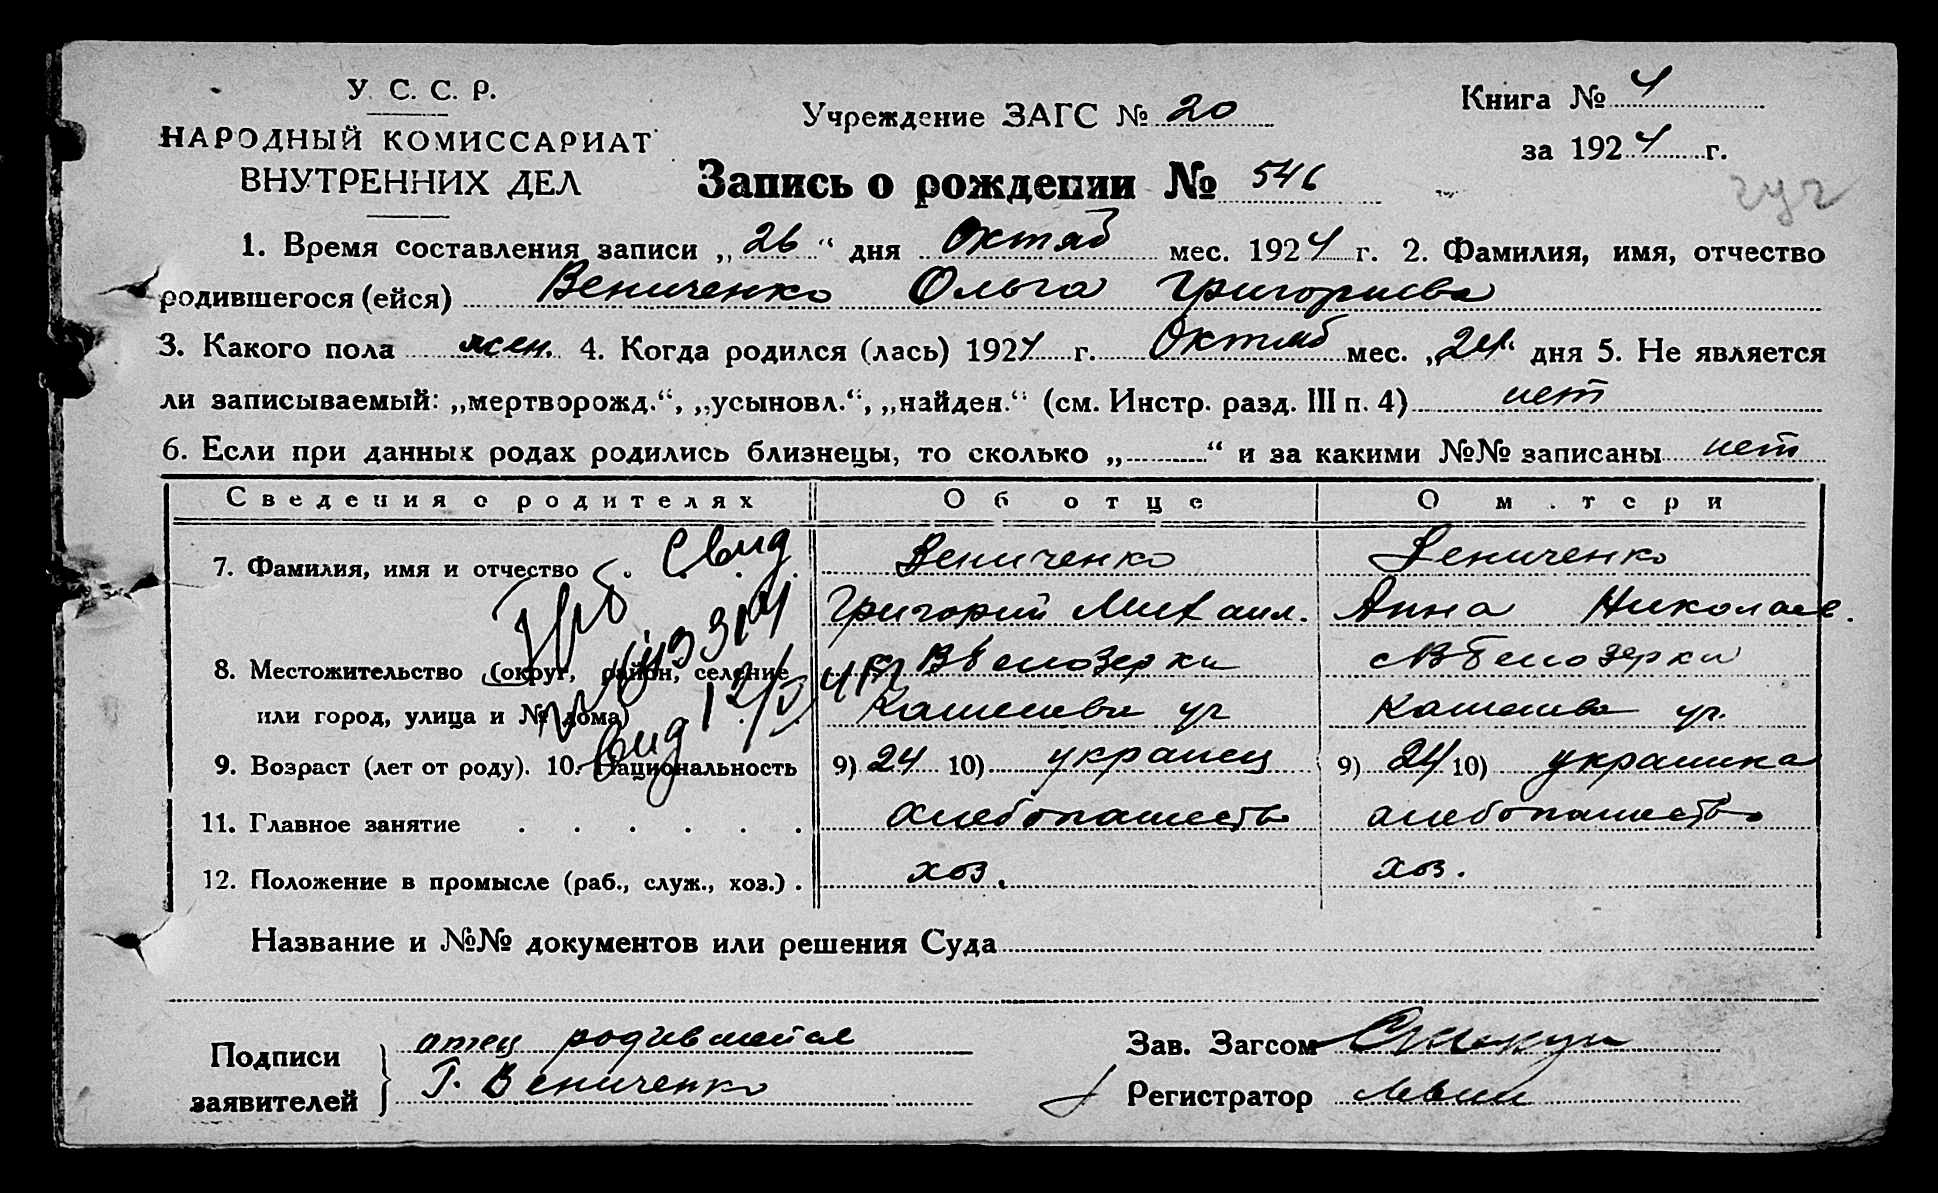 У. С. С. Р.
НАРОДНЫЙ КОМИССАРИАТ
ВНУТРЕННИХ ДЕЛ
Учреждение ЗАГС № 20
Книга № 4
за 1924 г.
Запись о рождении № 546
1. Время составления записи „26“ дня Октяб мес. 1924 г. 2. Фамилия, имя, отчество
родившегося (ейся) Вениченко Ольга Григориева
3. Какого пола жен. 4. Когда родился (лась) 1924 г. Октяб мес. „24. дня 5. Не является
ли записываемый: „мертворожд.“, „усыновл.“, „найден.“ (см. Инстр. разд. III п. 4) нет
6. Если при данных родах родились близнецы, то сколько „ “ и за какими №№ записаны нет
Сведения о родителях Об отце О м.тери
7. Фамилия, имя и отчество Вениченко Вениченко
Григорий Михаил. Анна Николаев.
8. Местожительство (округ, район, селение Белозерки Белозерки
или город, улица и № дома)
9. Возраст (лет от роду). 10. Национальность 9) 24 10) украинец 9) 24 10) украинка
11. Главное занятие хлебопашеств хлебопашество
12. Положение в промысле (раб., служ., хоз.) . хоз. хоз.
Повт. свид
Название и №№ документов или решения Суда
Подписи заявителей
отец родившейся
Г. Вениченко
Зав. Загсом
Регистратор Левин